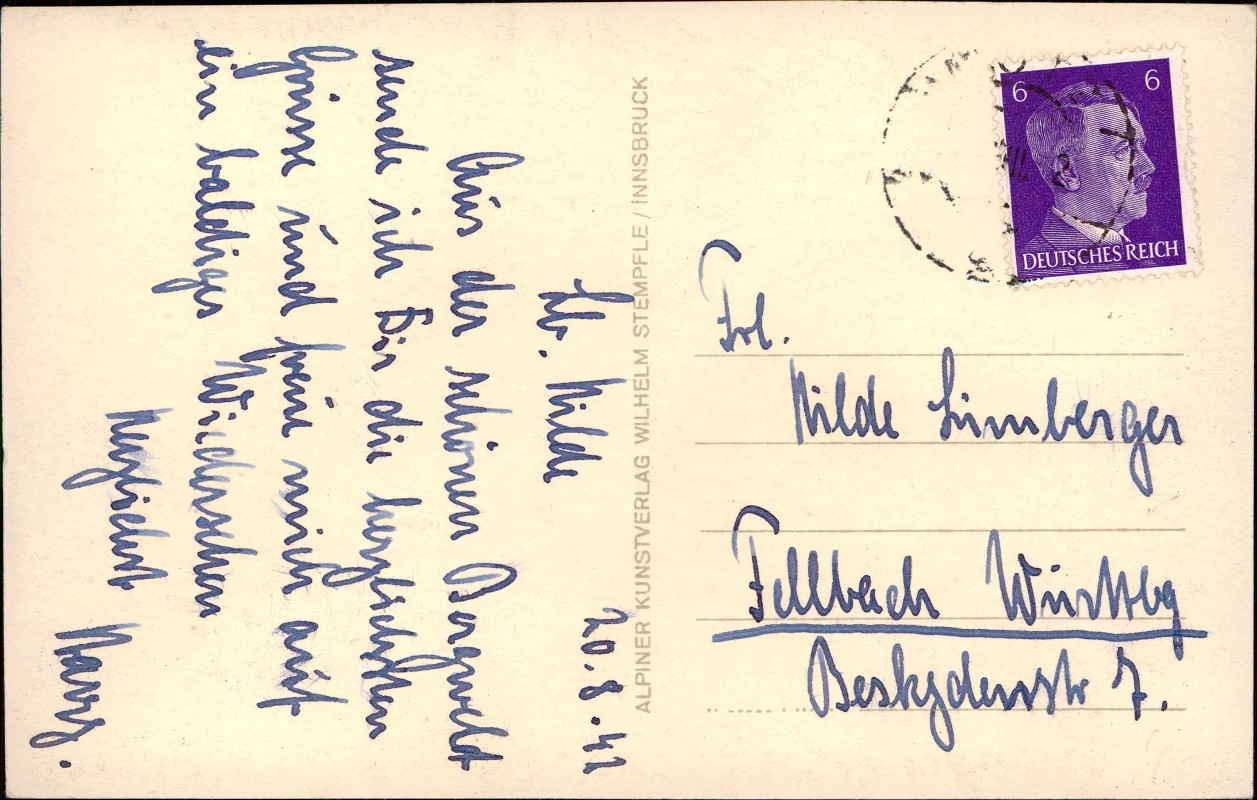 20.8.42
Lb. Hilde
Aus der schönen Bergwelt
sende ich Dir die herzlichsten
Grüsse und freue mich auf
ein baldiges Wiedersehen
Herzlichst
Harry.
ALPINER KUNSTVERLAG WILHELM STEMPFLE / INNSBRUCK
6 6
DEUTSCHES REICH
Frl.
Hilde Limberger
Fellbach Württbg
Beskydenstr 7.